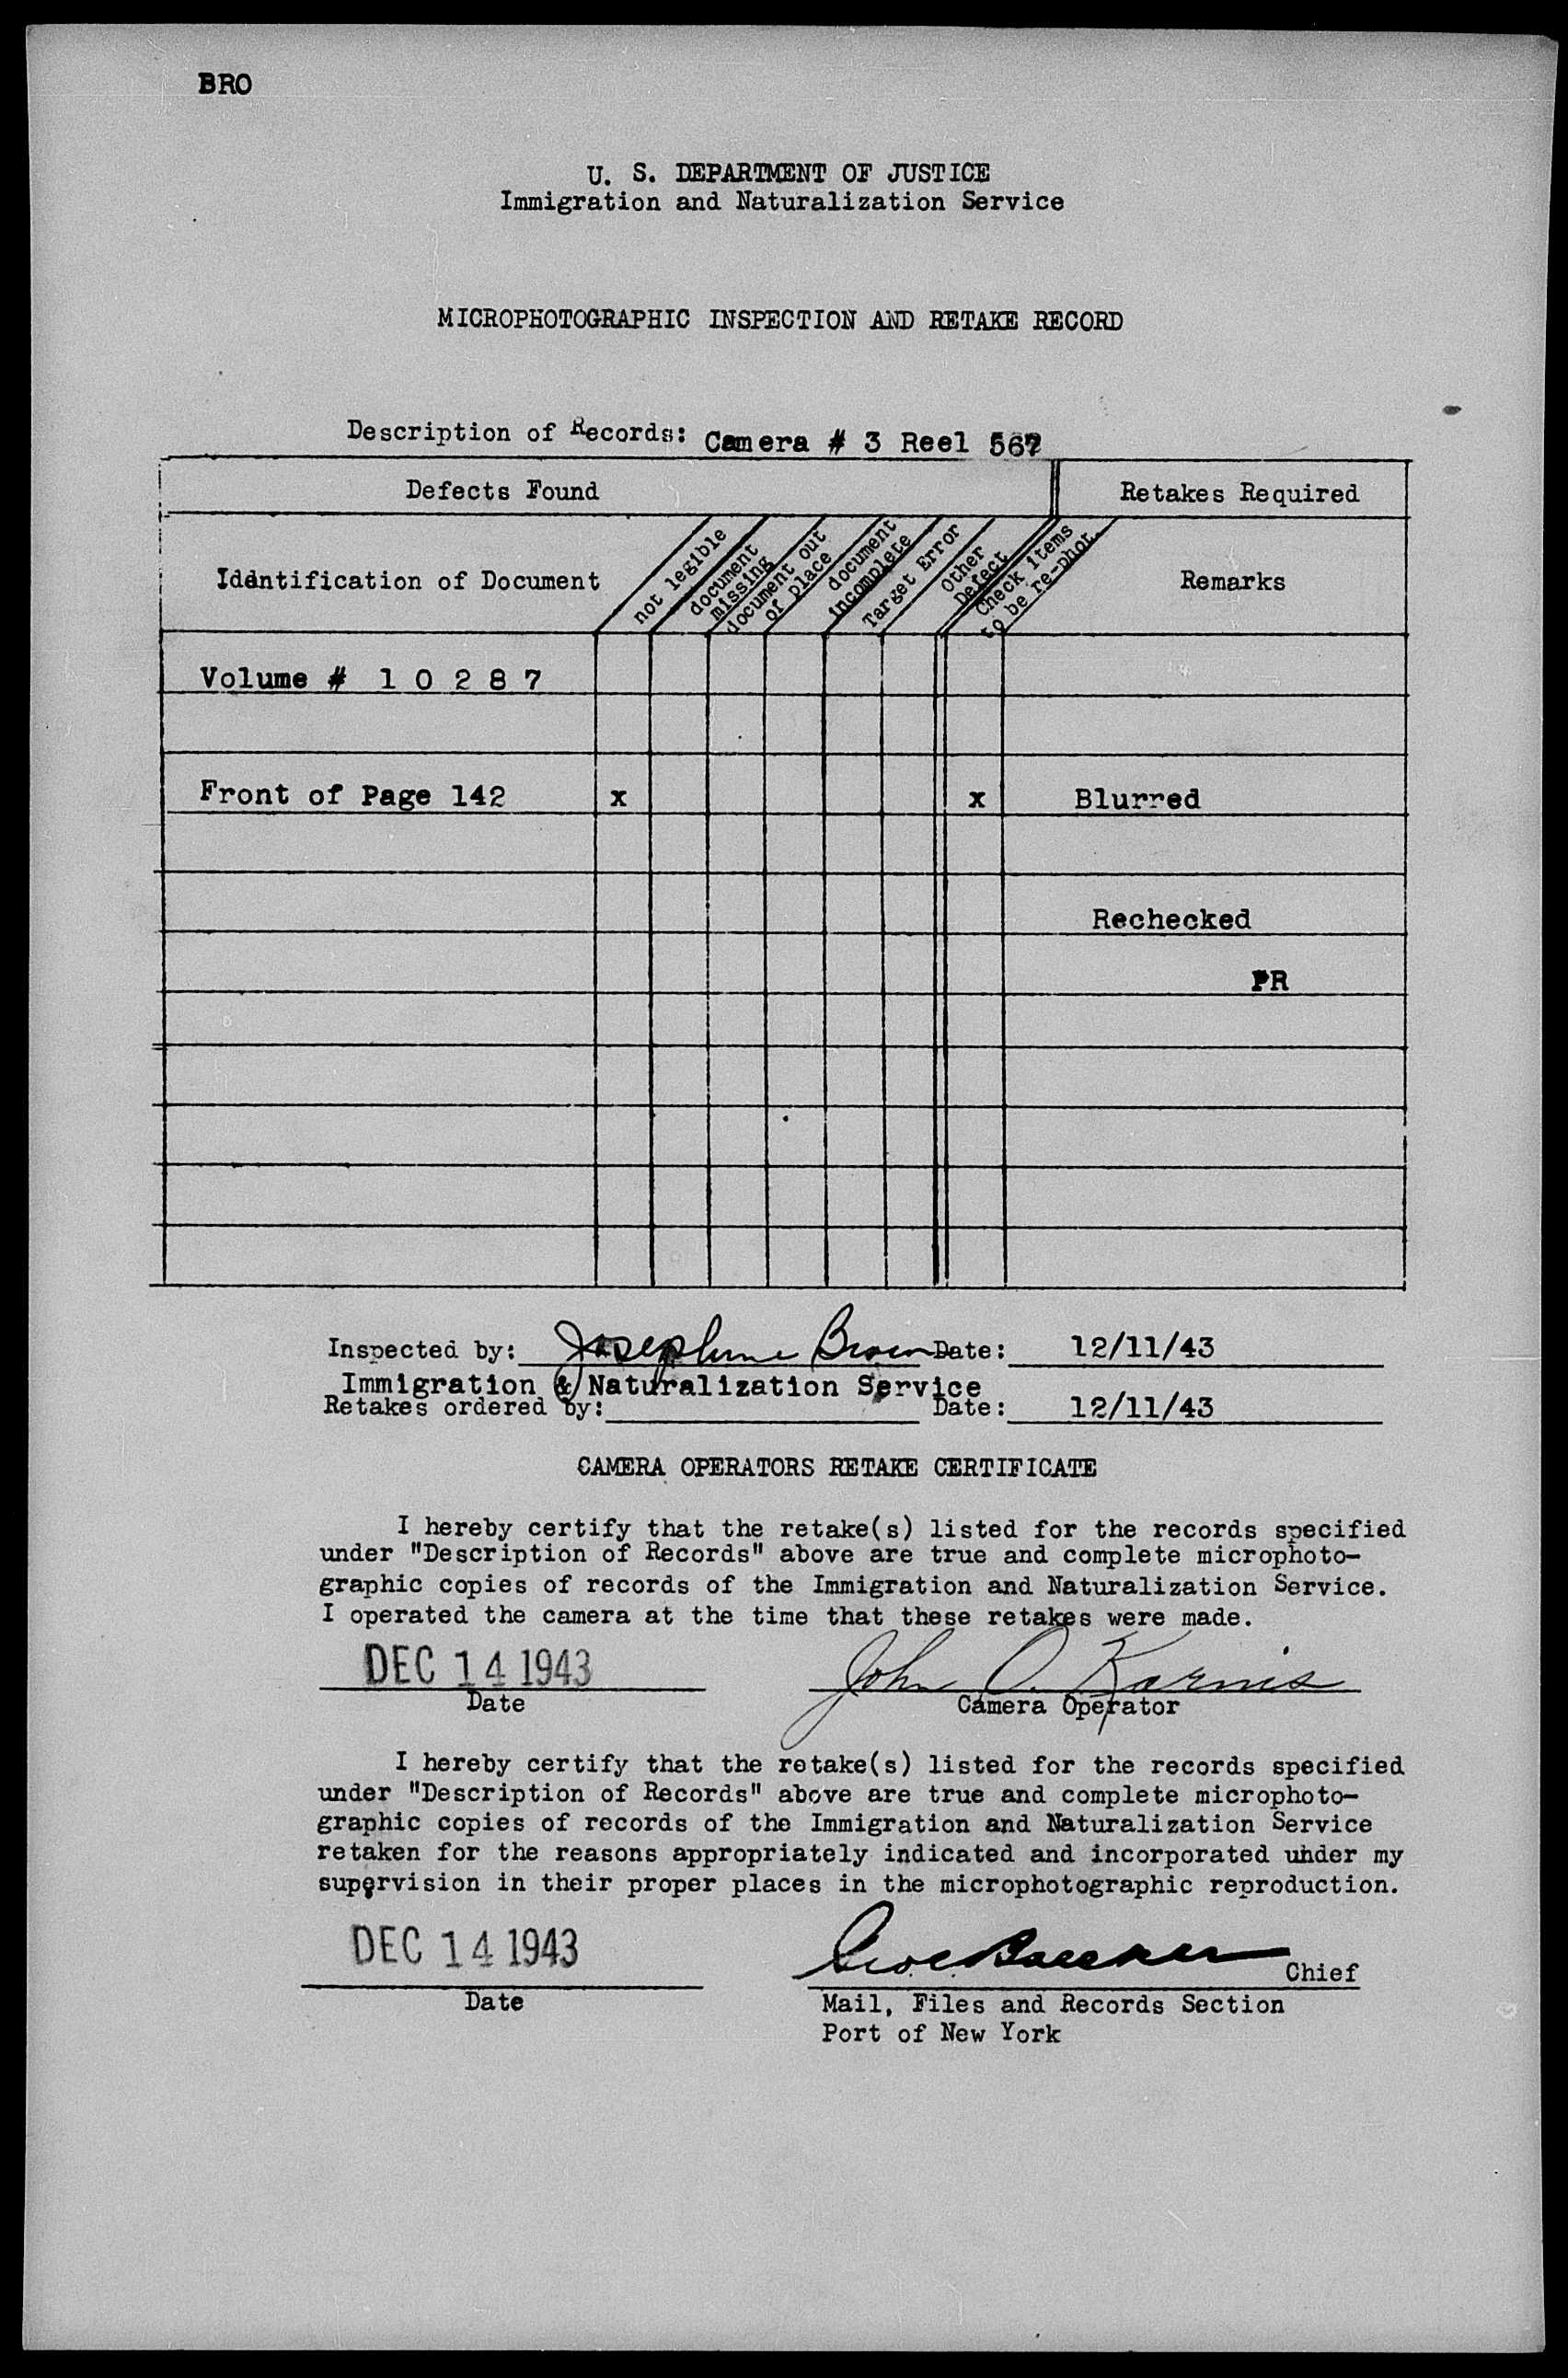 BRO
U. S. DEPARTMENT OF JUSTICE
Immigration and Naturalization Service
MICROPHOTOGRAPHIC INSPECTION AND RETAKE RECORD
Description of Records: Camera # 3 Reel
Defects Found
Retakes Required
Identification of Document
not legible
document missing
document out of place
document incomplete
Target Error
Other Defect
Check items to be re-phot.
Remarks
Volume # 1 0 2 8 7
Front of Page 142 x x Blurred
Rechecked
PR
Inspected by: Josephine Brown Date: 12/11/43
Immigration & Naturalization Service
Retakes ordered by: Date: 12/11/43
CAMERA OPERATORS RETAKE CERTIFICATE
I hereby certify that the retake(s) listed for the records specified
under "Description of Records" above are true and complete microphoto-
graphic copies of records of the Immigration and Naturalization Service.
I operated the camera at the time that these retakes were made.
DEC 14 1943 John O. Karnis
Date Camera Operator
I hereby certify that the retake(s) listed for the records specified
under "Description of Records" above are true and complete microphoto-
graphic copies of records of the Immigration and Naturalization Service
retaken for the reasons appropriately indicated and incorporated under my
supervision in their proper places in the microphotographic reproduction.
DEC 14 1943 Chief
Date Mail, Files and Records Section
Port of New York